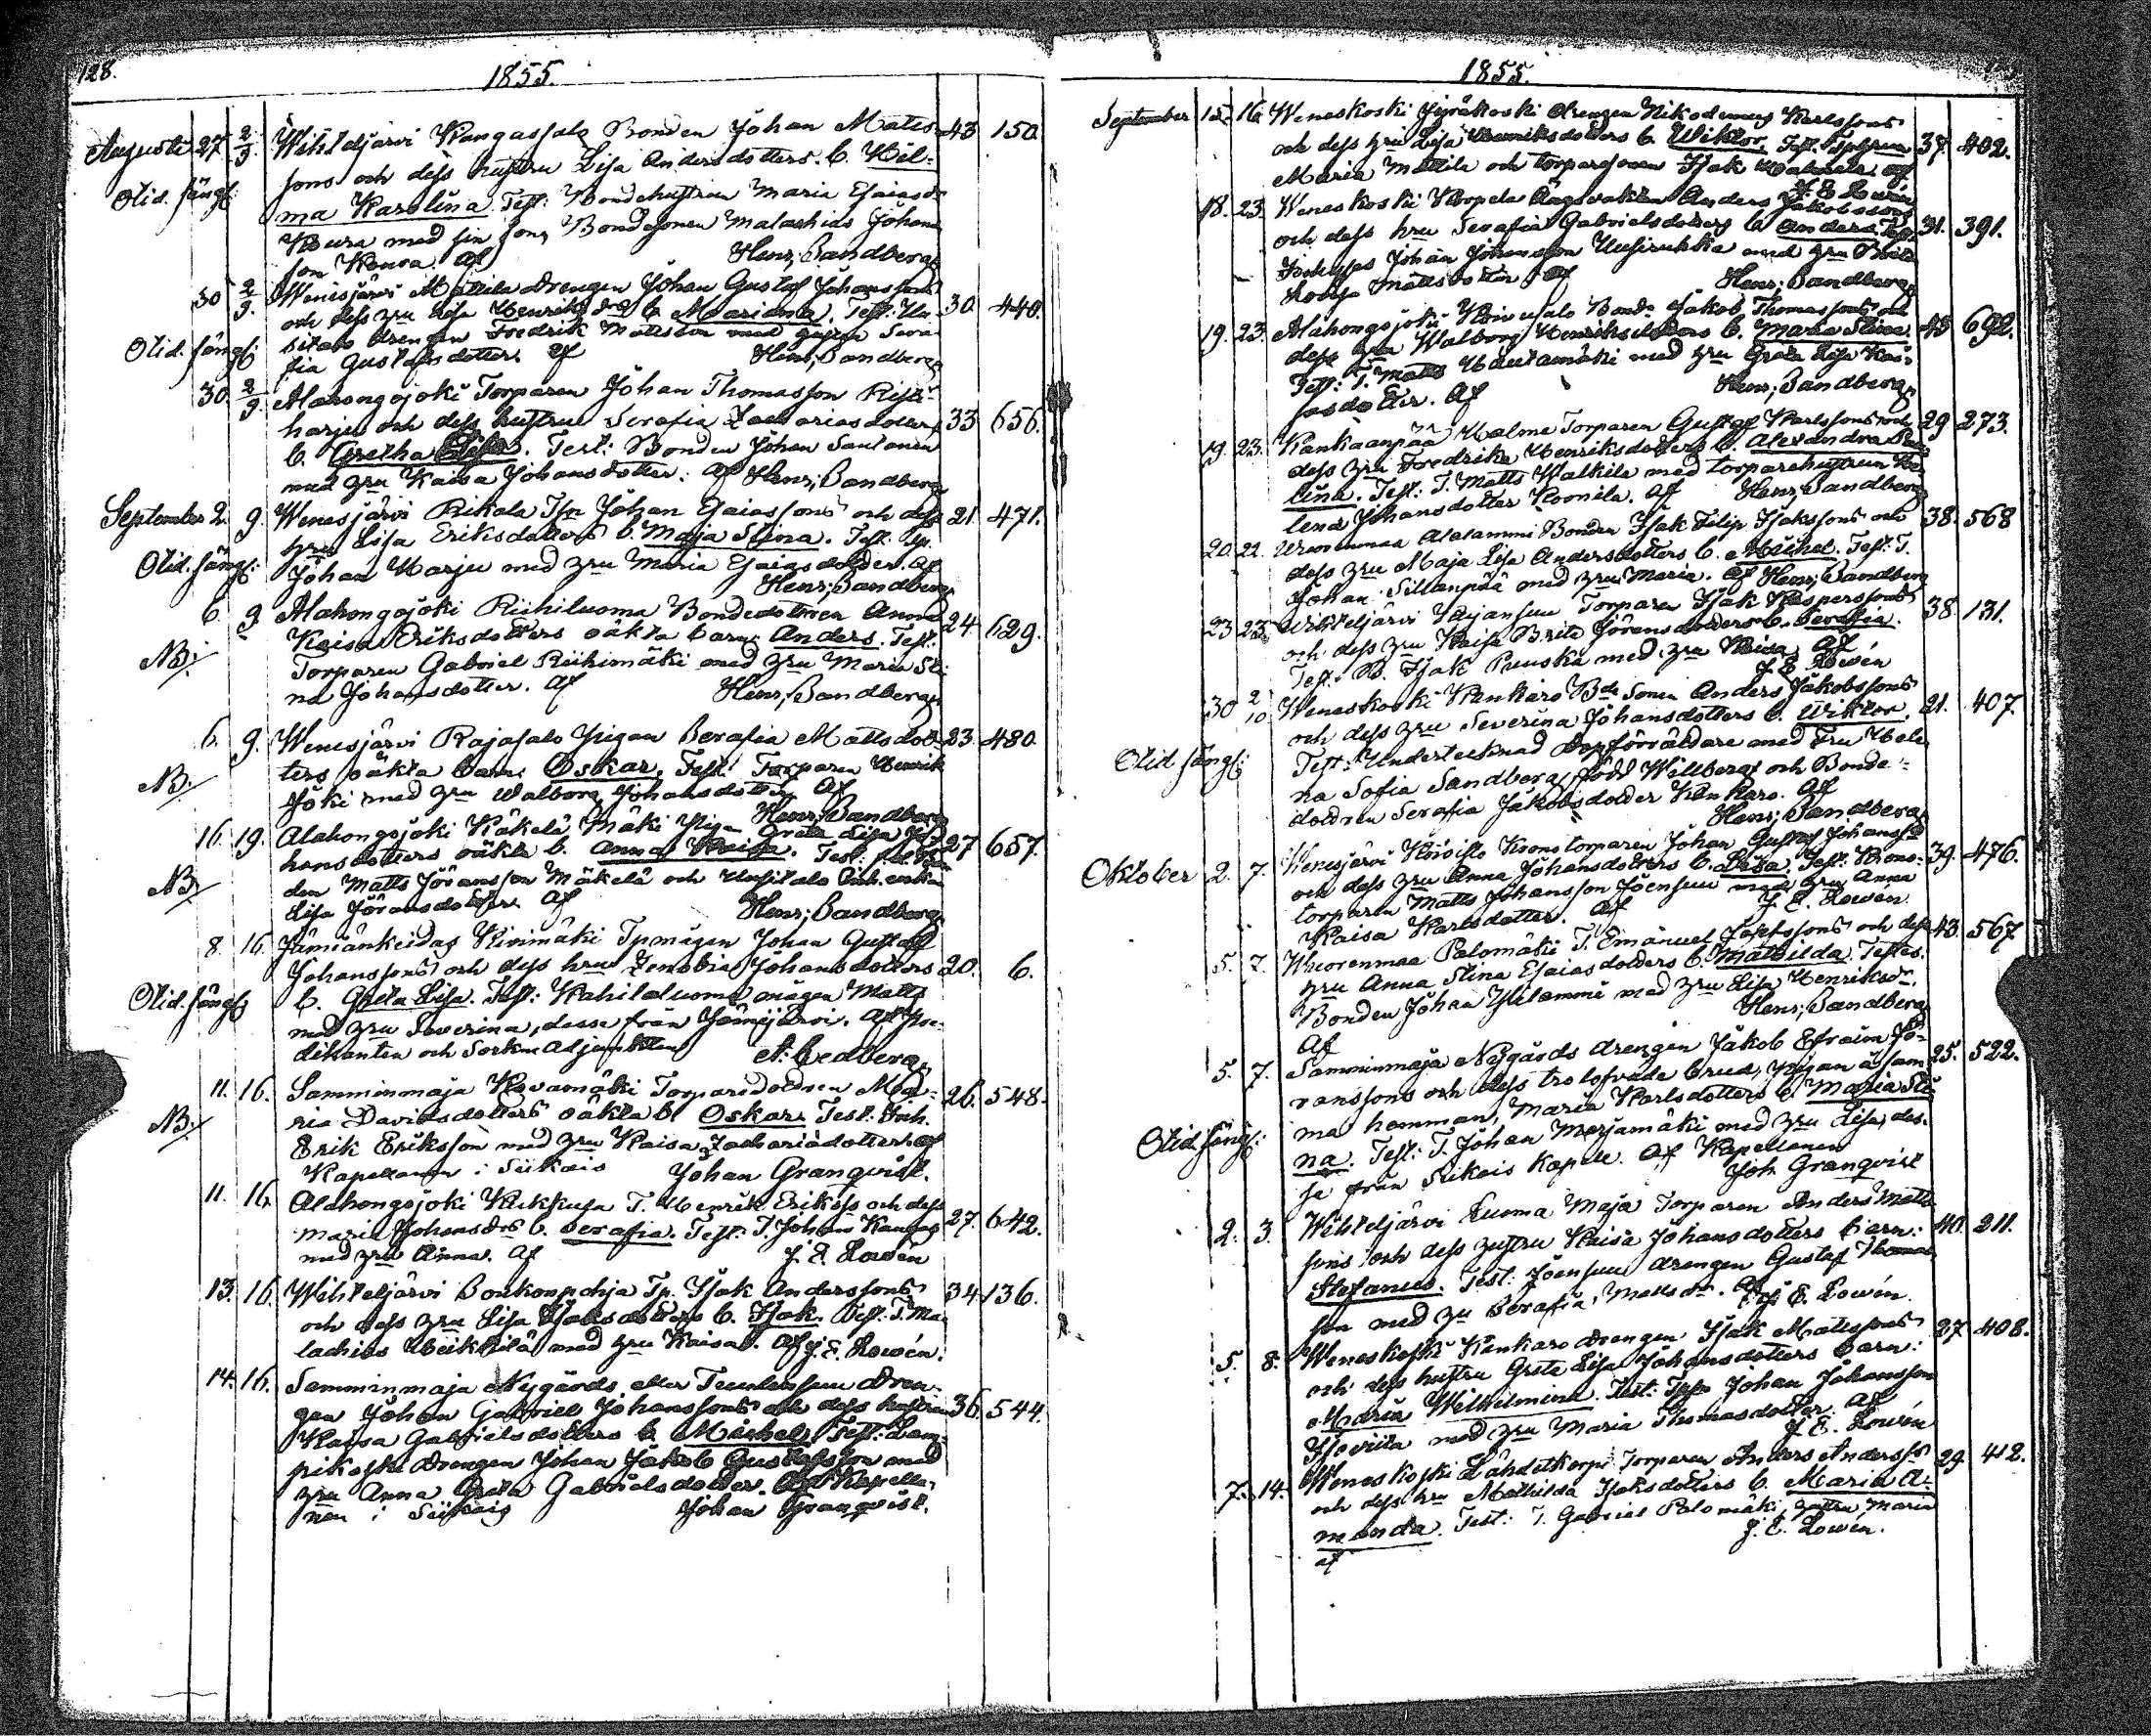 128.
1855.
Augusti 27 2/9. Wihteljärvi Kangassalo Bonden Johan Matts- 43 150.
sons och dess hustru Lisa Andersdotters b. Wil-
Otid. sängl: ma Karolina. Test: Bondehustrun Maria Esaiasd:
Koura med sin son, Bondesonen Malachias Johans
son Koura. Af Henr; Sandberg
30 2/9. Wenesjärvi Mattila drengen Johan Gustaf Johanssons 30 440.
och dess hru Lisa Henriksd:s b. Mariana. Test: Uu-
sitalo drengen Fredrik Mattsson med Sera-
Otid. sängl: fia Gustafsdotter. Af Henr; Sandberg
30. 2/9. Alahongojoki Torparen Johan Thomasson Risti-
harju och dess hustru Serafia Zachariasdotters 33 656.
b. Gretha Lisa. Test: Bonden Johan Santanen
med hru Kaisa Johansdotter. Af Henr; Sandberg
September 2. 9. Wenesjärvi Rikala Tpr Johan Esaiassons och dess 21. 471.
hru Lisa Eriksdotters b. Maja Stina. Test. Tp.
Otid. sängl: Johan Harju med hru Maria Esaiasdotter. Af
Henr; Sandberg
6. 9. Alahongojoki Riihiluoma Bondedottren Anna 24. 629.
Kaisa Eriksdotters oäkta barn: Anders. Test:
NB; Torparen Gabriel Riihimäki med hru Maria Sti-
na Johansdotter. Af Henr; Sandberg
6. 9. Wenesjärvi Rajasalo Pigan Serafia Mattsdot- 23. 480.
ters oäkta barn: Oskar. Test: Torparen Henrik
NB. Joki med hru Walborg Johansdotter. Af
Henr; Sandberg
16. 19. Alahongojoki Käkelä Mäki Pigan Greta Lisa Jo- 27 657.
hansdotters oäkta b. Anna Kaisa. Test:
NB den Matts Göransson Mäkelä och Uusitalo Inh. enkan
Lisa Göransdotter. Af Henr; Sandberg
8. 16. Jämiänkeidas Kivimäki Tpmågen Johan Gustaf
Johanssons och dess hru Zenobia Johansdotters 20. 6.
Otid. sängl b. Greta Lisa. Test: Kahilaluoma mågen Matts
med hru Severina, desse från Jämijärvi. Af Pre-
dikanten och Sockne Adjunkten A. Cedberg.
11. 16. Samminmaja Kovamäki Torparedottren Ma- 26. 548.
ria Davidsdotters oäkta b. Oskar. Test. Inh.
NB. Erik Eriksson med hru Kaisa Zachariädotter. Af
Kapellanen i Siikais Johan Granqvist.
11. 16. Alahongojoki Kukkula T. Henrik Erikss. och dess
Maria Johansdrs b. Serafia. Test: T. Johan Kangas 27. 642.
med hru Anna. Af J. E. Lowén
13. 16. Wihteljärvi Bonkonpohja Tp. Isak Anderssons 34 136.
och dess hru Lisa Isaksdotters b. Isak. Test: T. Ma-
lachias Heikkilä med hru Kaisa. Af J. E. Lowén.
14. 16. Samminmaja Nygårds eller dren-
gen Johan Gabriel Johanssons och dess hustru 36. 544.
Kaisa Gabrielsdotters b. Michel. Test: Lam-
pikoski drengen Johan Jakob Gustafsson med
hru Anna Greta Gabrielsdotter. Af Kapella-
nen i Siikais Johan Granqvist.
1855.
September 15. 16. Weneskoski Jyräkoski drengen Nikodemus Karlssons
och dess hru Lisa Henriksdotters b. Wiktor. Test. 37. 402.
Maria Mattila och torparesonen Isak Mattila. Af
J. E. Lowén
18. 23. Weneskoski Korpela Anders Jakobssons
och dess hru Serafia Gabrielsdotters b. Anders. Test: 31. 391.
Johan Johansson Uusiruukka med hru Brita
Mattsdotter. Af Henr; Sandberg
19. 23. Alahongojoki Koivusalo Bond. Jakob Thomassons och
dess hru Walborg Henriksdotters b. Maria Stina. 45 692.
Test: T. Matts Hautamäki med hru Greta Lisa Kai-
sasdotter. Af Henr; Sandberg
19. 23. Kankaanpää Malme Torparen Gustaf Karlssons och 29 273.
dess hru Fredrika Henriksdotters b. Alexandra Ka-
lina. Test: T. Matts Walkila med torparehustrun He-
lena Johansdotter Koonila. Af Henr; Sandberg
20. 22. Wuorenmaa Alalammi Bonden Isak Filip Isakssons och 38. 568
dess hru Maja Lisa Andersdotters b. Michel. Test: T.
Johan Sillanpää med hru Maria. Af Henr; Sandberg
23 23. Wihteljärvi Vajansuu Torparen Isak Kasperssons 38. 131.
och dess hru Kaisa Brita Göransdotters b. Serafia.
Test. B. Isak Puuska med hru Kaisa. Af
J. E. Lowén
30 2/10. Weneskoski Kankaro Bde Sonen Anders Jakobssons 21. 407.
och dess hru Severina Johansdotters b. Wiktor.
Otid sängl: Test: Undertecknad Dopförrättare med Fru Hele-
na Sofia Sandberg, född Willberg och Bonde-
dottren Serafia Jakobsdotter Kankaro. Af
Henr; Sandberg
Oktober 2. 7. Wenesjärvi Koivisto Kronotorparen Johan Gustaf Johanss:s
och dess hru Anna Johansdotters b. Lisa. Test: Krono- 39. 476.
torparen Matts Johansson Joensuu med hru Anna
Kaisa Karlsdotter. Af J. E. Lowén.
5. 7. Wuorenmaa Palomäki T. Emanuel Josefssons och dess 43. 567
hru Anna Stina Esaiasdotters b. Mathilda. Testes.
Bonden Johan Ylilammi med hru Lisa Henriksdr.
Af Henr; Sandberg
5. 7. Samminmaja Nygårds drengen Jakob Efraim Jö- 25. 522.
ranssons och dess trolofvade brud, pigan å sam-
ma hemman, Maria Karlsdotters b. Maria Sti-
Otid. sängl: na. Test: T. Johan Marjamäki med hru Lisa, des-
se från Siikais Kapell. Af Kapellanen
Joh Granqvist
2. 3. Wihteljärvi Luoma Maja Torparen Anders Matts
sons och dess hustru Kaisa Johansdotters barn: 40. 211.
Stefanus. Test: Joensuu drengen Gustaf Thomas
son med hru Serafia Mattsdr. Af J. E. Lowén.
5. 8. Weneskoski Kankaro drengen Isak Matssons 27 408.
och dess hustru Greta Lisa Johansdotters barn:
Maria Wilhelmina. Test: Tpn Johan Johansson
med hru Maria Thomasdotter. Af
J. E. Lowén
7. 14. Weneskoski Lähdetkorpi Torparen Anders Anderss:s 29. 412.
och dess hru Mathilda Isaksdotters b. Maria A-
manda. Test: T. Gabriel Palomäki, hustru Maria
af J. E. Lowén.